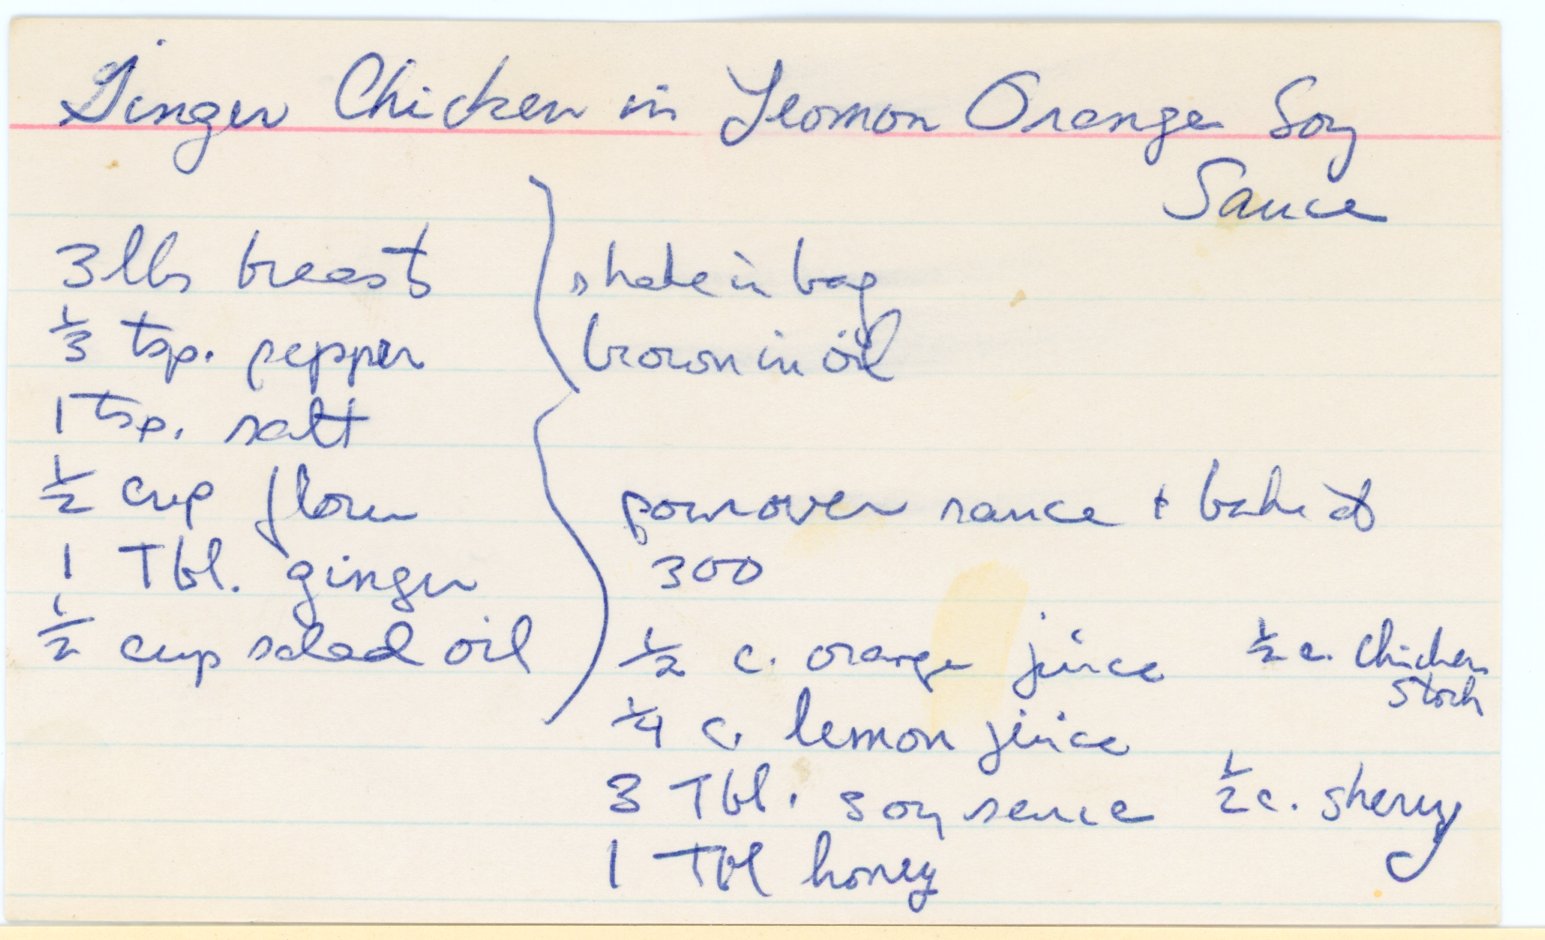 Ginger Chicken in Leomon Orange Soy
Sauce
3 lbs breast
1/3 tsp. pepper
1 tsp. salt
1/2 cup flour
1 Tbl. ginger
1/2 cup salad oil
shake in bag
brown in oil
pour over sauce + bake at
300
1/2 c. orange juice
1/4 c. lemon juice
3 Tbl. soy sauce
1 Tbl honey
1/2 c. chicken
stock
1/2 c. sherry